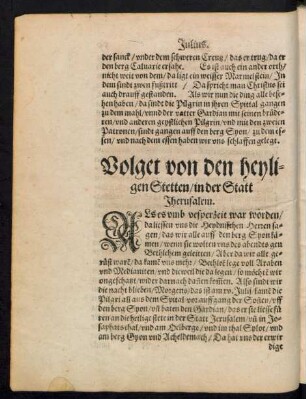 Julius.
der sanck / vnder dem schweren Creutz / das er trug / da er
den berg Caluarie ersahe. Es ist auch ein ander orth /
nicht weit von dem / da ligt ein weisser Marmelstein / In
dem sindt zwen fußtritt / Da spricht man Christus sei
auch drauff gestanden. Als wir nun die ding alle bese-
hen haben / da sindt die Pilgrin in ihren Spittal gangen
zu dem mahl / vnnd der vatter Gardian mit seinen brüde-
ren / vnd anderen geystlichen Pilgrin / vnd mit den zweien
Patronen / sindt gangen auff den berg Syon / zu dem es-
sen / vnd nach dem essen haben wir vns schlaffen gelegt.
Volget von den heyli-
gen Stetten / in der Statt
Jherusalem.
ALs es vmb vesperzeit war worden /
da liessen vns die Heydnischen Herren sa-
gen / das wir alle auff den berg Syon kä-
men / wenn sie wolten vns des abendts gen
Bethlehem geleitten / Aber da wir alle ge-
rüst warē / da kamē vns mehr / Bethlehē lege voll Araben
vnd Medianiten / vnd dieweil die da legen / so möcht ē wir
ongeschant / oder worden nicht darein kom̄en. Also sindt wir
die nacht blieben / Morgens / das ist am xv. Julij samlē die
Pilgrī alß aus dem Spital vor auffgang der Soñen / vff
den berg Syon / vñ baten den Gardian / das er sie liesse fü-
ren an die heilige stette in der Statt Jerusalem / vñ in Jo-
saphats thal / vnd am Oelberge / vnd im thal Syloe / vnd
am berg Gyon vnd Acheldemach / Da hat vns der erwir
dige